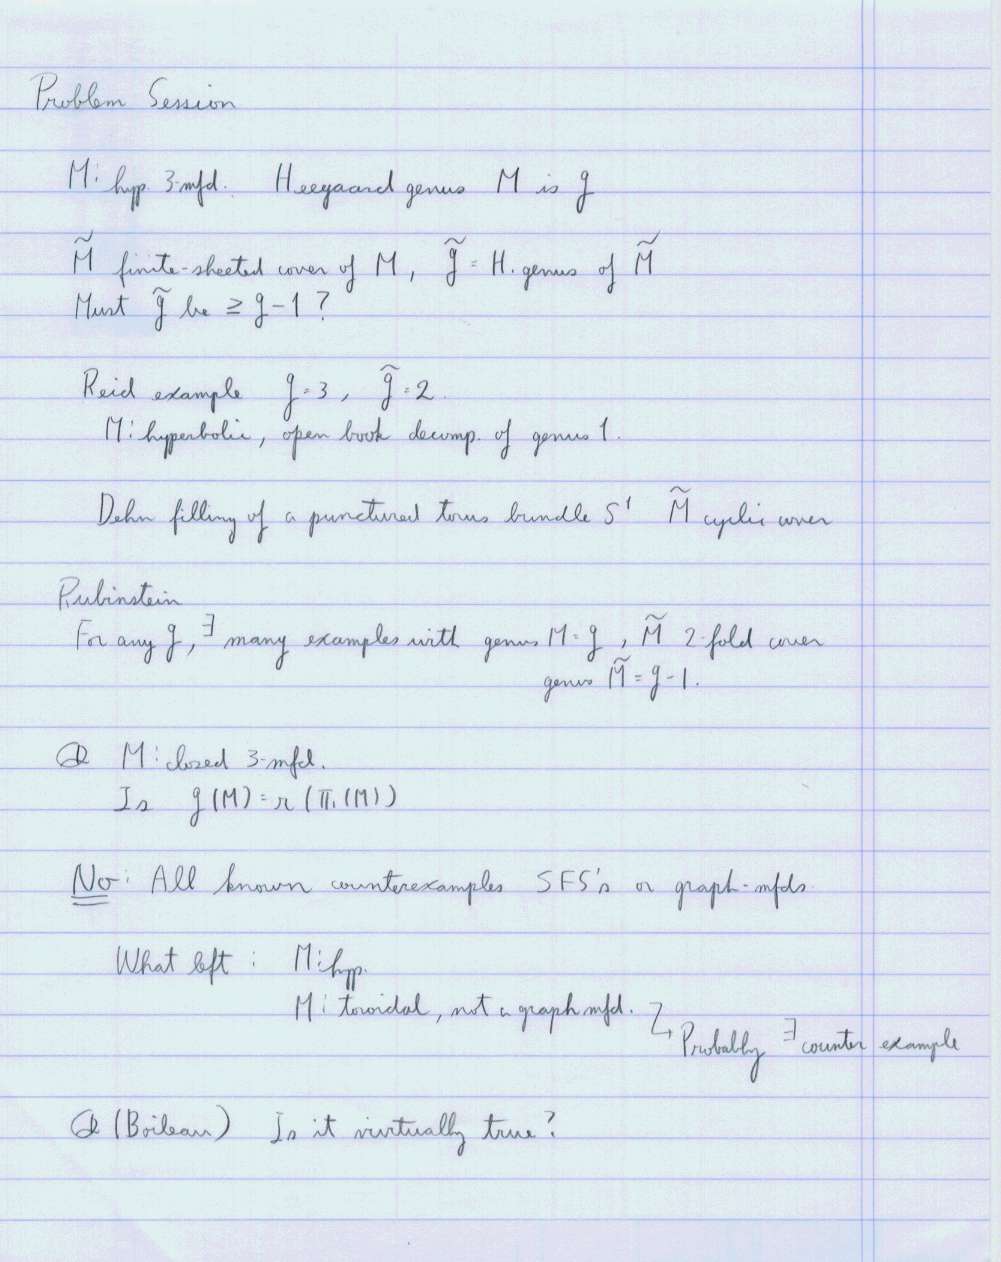 Problem Session
M: hyp. 3-mfd. Heegaard genus M is g
M̃ finite-sheeted cover of M, g̃ = H. genus of M̃
Must g̃ be ≥ g-1 ?
Reid example g=3, g̃=2.
M: hyperbolic, open book decomp. of genus 1.
Dehn filling of a punctured torus bundle S¹ M̃ cyclic cover
Rubinstein
For any g, ∃ many examples with genus M=g, M̃ 2-fold cover
genus M̃ = g-1.
Q M: closed 3-mfd.
Is g(M) = r(π₁(M))
No: All known counterexamples SFS's or graph-mfds.
What left : M: hyp.
M: toroidal, not a graph mfd.
↳ Probably ∃ counter example
Q (Boileau) Is it virtually true?